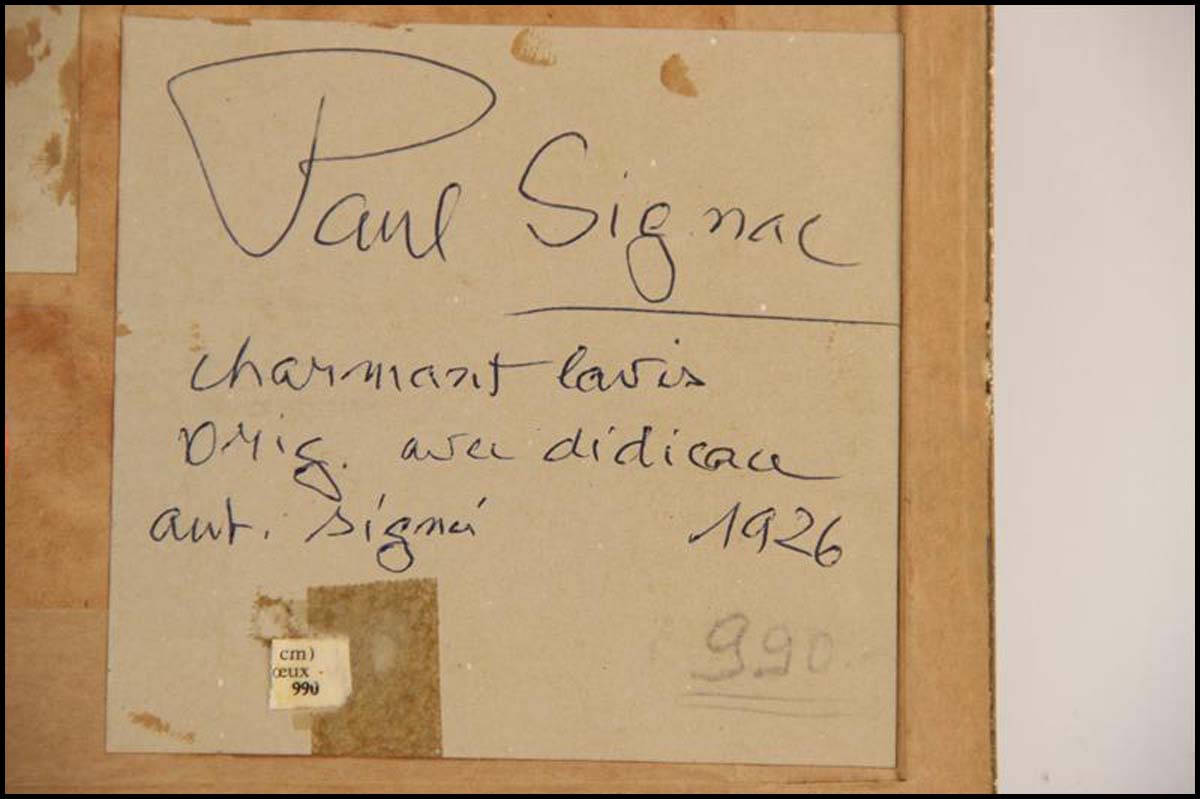 Paul Signac
charmant lavis
orig. avec dédicace
aut. signé 1926
990
cm)
œux .
990